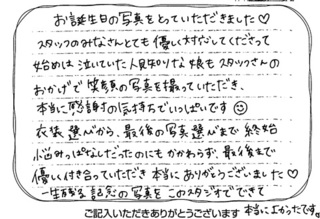 お誕生日の写真をとっていただきました♡
スタッフのみなさんとても優しく対応してくださって
始めは泣いていた人見知りな娘もスタッフさんの
おかげで笑顔の写真を撮っていただき、
本当に感謝の気持ちでいっぱいです☺
衣装選びから、最後の写真選びまで終始
悩みっぱなしだったのにもかかわらず、最後まで
優しく付き合っていただき本当にありがとうございました♡
一生残る記念の写真をこのスタジオでできて
本当に良かったです。
ご記入いただきありがとうございます